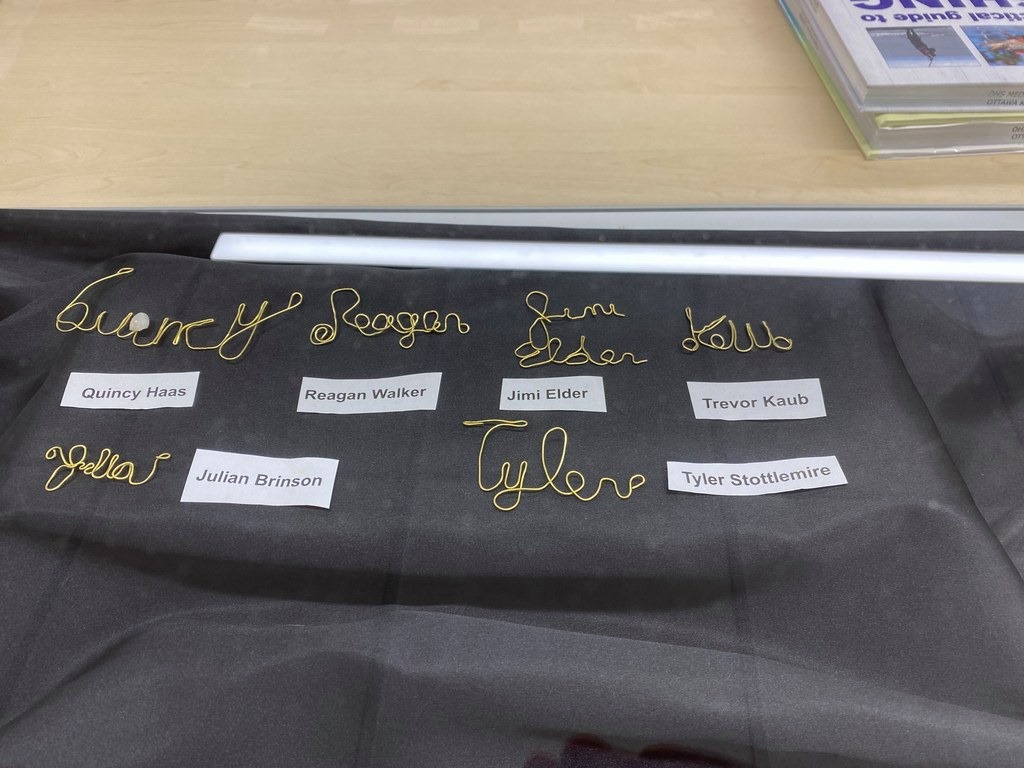 tical guide to
OHS MED
OTTAWA K
Quincy
Reagan
Jimi
Elder
Quincy Haas
Reagan Walker
Jimi Elder
Trevor Kaub
Tyler
Julian Brinson
Tyler Stottlemire